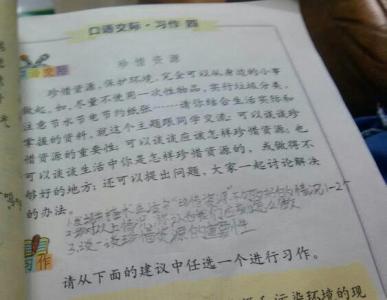 口语交际·习作 四
语交际
珍惜资源
珍惜资源，保护环境，完全可以从身边的小事
做起。如，尽量不使用一次性物品，实行垃圾分类，
注意节水节电节约纸张……请你结合生活实际和
掌握的资料，就这个主题跟同学交流：可以谈谈珍
惜资源的重要性；可以谈谈应该怎样珍惜资源；也
可以谈谈生活中你是怎样珍惜资源的，或做得不
够好的地方；还可以提出问题，大家一起讨论解决
的办法。
3.谈一谈珍惜资源的重要性
习作
请从下面的建议中任选一个进行习作。
污染环境的现